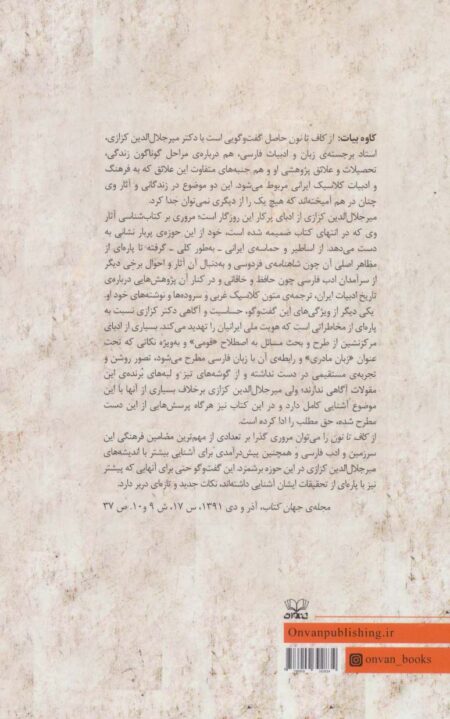 کاوه بیات: از کاف تا نون حاصل گفت‌وگویی است با دکتر میرجلال‌الدین کزازی،
استاد برجسته‌ی زبان و ادبیات فارسی، هم درباره‌ی مراحل گوناگون زندگی،
تحصیلات و علائق پژوهشی او و هم جنبه‌های متفاوت این علائق که به فرهنگ
و ادبیات کلاسیک ایرانی مربوط می‌شود. این دو موضوع در زندگانی و آثار وی
چنان در هم آمیخته‌اند که هیچ یک را از دیگری نمی‌توان جدا کرد.
میرجلال‌الدین کزازی از ادبای پرکار این روزگار است؛ مروری بر کتاب‌شناسی آثار
وی که در انتهای کتاب ضمیمه شده است، خود از این حوزه‌ی پربار نشانی به
دست می‌دهد. از اساطیر و حماسه‌ی ایرانی ـ به‌طور کلی ـ گرفته تا پاره‌ای از
مظاهر اصلی آن چون شاهنامه‌ی فردوسی و به‌دنبال آن آثار و احوال برخی دیگر
از سرآمدان ادب فارسی چون حافظ و خاقانی و در کنار آن پژوهش‌هایی درباره‌ی
تاریخ ادبیات ایران، ترجمه‌ی متون کلاسیک غربی و سروده‌ها و نوشته‌های خود او.
یکی دیگر از ویژگی‌های این گفت‌وگو، حساسیت و آگاهی دکتر کزازی نسبت به
پاره‌ای از مخاطراتی است که هویت ملی ایرانیان را تهدید می‌کند. بسیاری از ادبای
مرکزنشین از طرح و بحث مسائل به اصطلاح «قومی» و به‌ویژه نکاتی که تحت
عنوان «زبان مادری» و رابطه‌ی آن با زبان فارسی مطرح می‌شود، تصور روشن و
تجربه‌ی مستقیمی در دست نداشته و از گوشه‌های تیز و لبه‌های بُرنده‌ی این
مقولات آگاهی ندارند؛ ولی میرجلال‌الدین کزازی برخلاف بسیاری از آنها با این
موضوع آشنایی کامل دارد و در این کتاب نیز هرگاه پرسش‌هایی از این دست
مطرح شده، حق مطلب را ادا کرده است.
از کاف تا نون را می‌توان مروری گذرا بر تعدادی از مهم‌ترین مضامین فرهنگی این
سرزمین و ادب فارسی و همچنین پیش‌درآمدی برای آشنایی بیشتر با اندیشه‌های
میرجلال‌الدین کزازی در این حوزه برشمرد. این گفت‌وگو حتی برای آنهایی که پیشتر
نیز با پاره‌ای از تحقیقات ایشان آشنایی داشته‌اند، نکات جدید و تازه‌ای دربر دارد.
مجله‌ی جهان کتاب، آذر و دی ۱۳۹۱، س ۱۷، ش ۹ و ۱۰. ص ۳۷
Onvanpublishing.ir
onvan_books